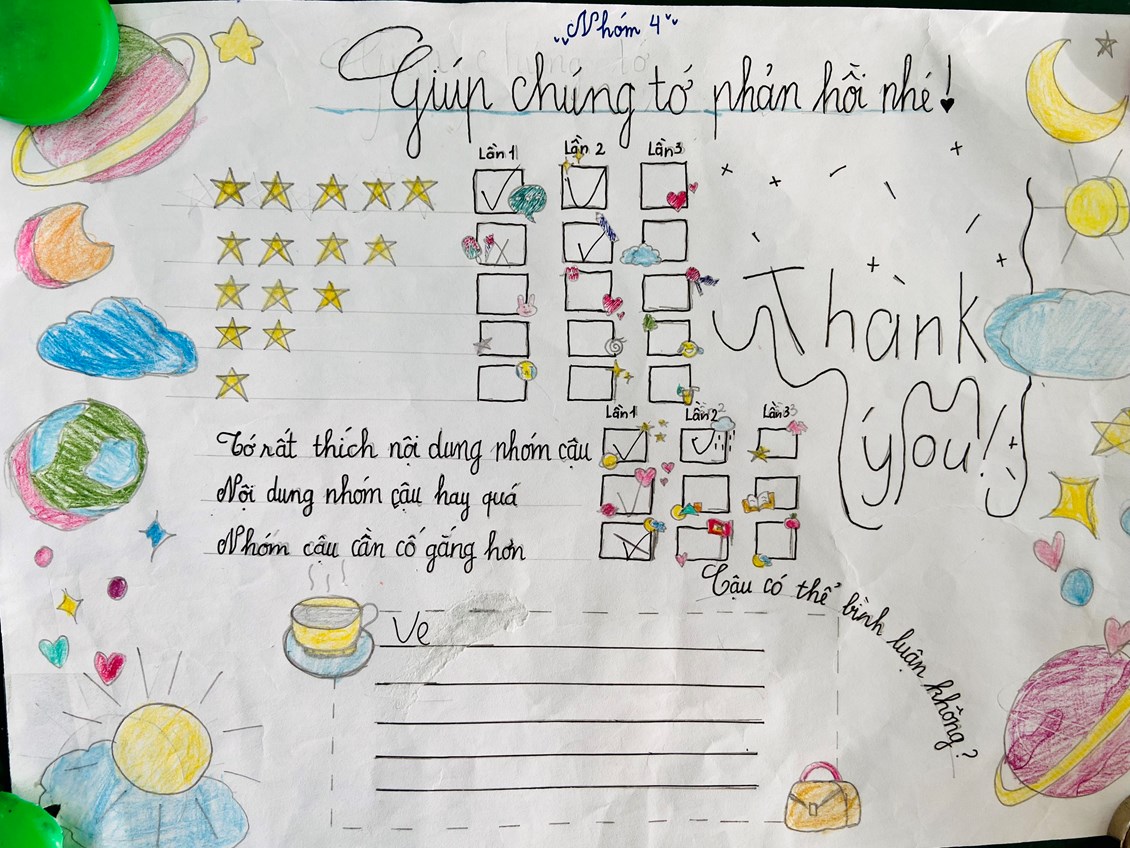 "Nhóm 4"
Giúp chúng tớ phản hồi nhé!
Lần 1 Lần 2 Lần 3
Lần 1 Lần 2 Lần 3
Tớ rất thích nội dung nhóm cậu
Nội dung nhóm cậu hay quá
Nhóm cậu cần cố gắng hơn
Thank
you!
Cậu có thể bình luận không?
Ve